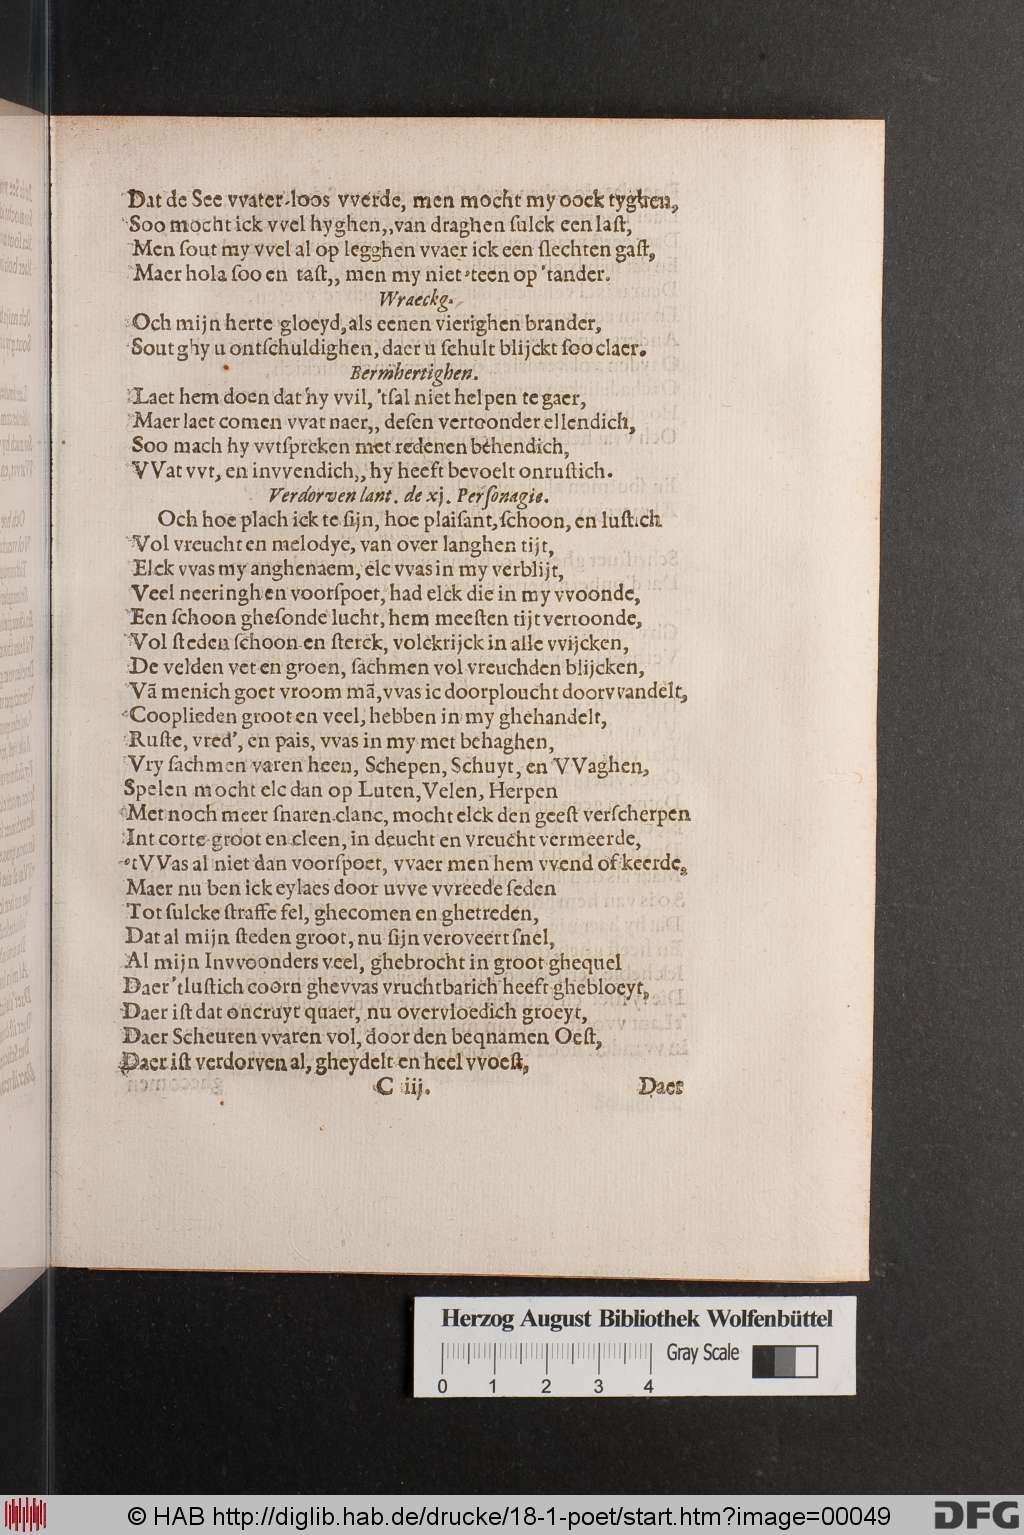 Dat de See vvater-loos vverde, men mocht my oock tyghen,
Soo mocht ick vvel hyghen,,van draghen ſulck een laſt,
Men ſout my vvel al op legghen vvaer ick een ſlechten gaſt,
Maer hola ſoo en taſt,, men my niet 'teen op 'tander.
Wraeckg.
Och mijn herte gloeyd, als eenen vierighen brander,
Sout ghy u ontſchuldighen, daer u ſchult blijckt ſoo claer.
Bermhertighen.
Laet hem doen dat hy vvil, 'tſal niet helpen te gaer,
Maer laet comen vvat naer,, deſen vertoonder ellendich,
Soo mach hy vvtſpreken met redenen behendich,
VVat vvt, en invvendich,, hy heeft bevoelt onruſtich.
Verdorven lant. de xj. Perſonagie.
Och hoe plach ick te ſijn, hoe plaiſant, ſchoon, en luſtich
Vol vreucht en melodye, van over langhen tijt,
Elck vvas my anghenaem, elc vvas in my verblijt,
Veel neeringh en voorſpoet, had elck die in my vvoonde,
Een ſchoon gheſonde lucht, hem meeſten tijt vertoonde,
Vol ſteden ſchoon en ſterck, volckrijck in alle vvijcken,
De velden vet en groen, ſachmen vol vreuchden blijcken,
Vã menich goet vroom mã, vvas ic doorploucht doorvvandelt,
Cooplieden groot en veel, hebben in my ghehandelt,
Ruſte, vred', en pais, vvas in my met behaghen,
Vry ſachmen varen heen, Schepen, Schuyt, en VVaghen,
Spelen mocht elc dan op Luten, Velen, Herpen
Met noch meer ſnaren clanc, mocht elck den geeſt verſcherpen
Int corte groot en cleen, in deucht en vreucht vermeerde,
'tVVas al niet dan voorſpoet, vvaer men hem vvend of keerde,
Maer nu ben ick eylaes door uvve vvreede ſeden
Tot ſulcke ſtraffe fel, ghecomen en ghetreden,
Dat al mijn ſteden groot, nu ſijn veroveert ſnel,
Al mijn Invvoonders veel, ghebrocht in groot ghequel
Daer 'tluſtich coorn ghevvas vruchtbarich heeft ghebloeyt,
Daer iſt dat oncruyt quaet, nu overvloedich groeyt,
Daer Scheuren vvaren vol, door den beqnamen Oeſt,
Daer iſt verdorven al, gheydelt en heel vvoeſt,
C iij. Daer
Herzog August Bibliothek Wolfenbüttel
Gray Scale
0 1 2 3 4
© HAB http://diglib.hab.de/drucke/18-1-poet/start.htm?image=00049 DFG